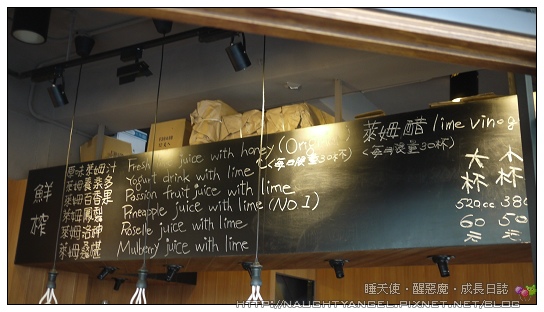 鮮榨
原味萊姆汁 Fresh juice with honey
萊姆養樂多 Yogurt drink with lime (每日限量30杯)
萊姆百香果 Passion fruit juice with lime
萊姆鳳梨 Pineapple juice with lime (NO.1)
萊姆洛神 Roselle juice with lime
萊姆桑椹 Mulberry juice with lime
萊姆醋 lime vineg
(每日限量30杯)
大杯 小杯
520cc 380
60元 50元
睡天使‧醒惡魔‧成長日誌
HTTP://NAUGHTYANGEL.PIXNET.NET/BLOG